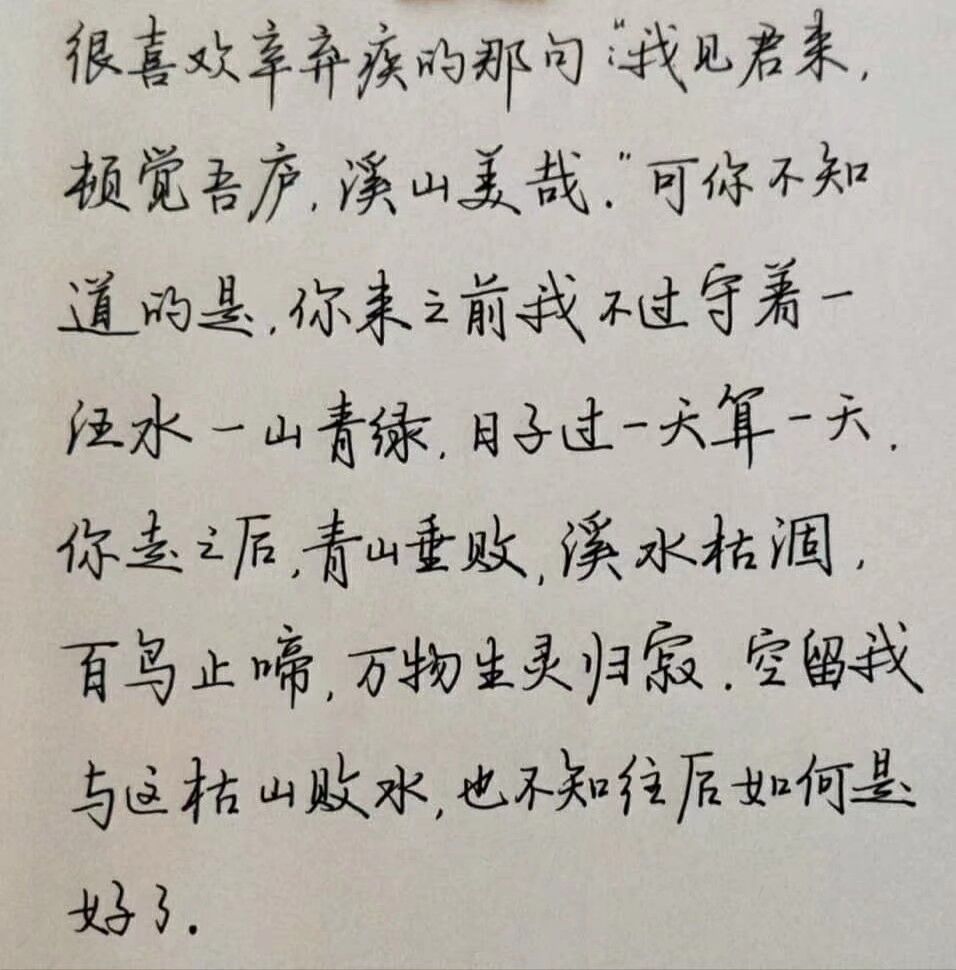 很喜欢辛弃疾的那句:"我见君来,
顿觉吾庐,溪山美哉."可你不知
道的是,你来之前我不过守着一
汪水一山青绿,日子过一天算一天.
你走之后,青山垂败,溪水枯涸,
百鸟止啼,万物生灵归寂.空留我
与这枯山败水,也不知往后如何是
好了.